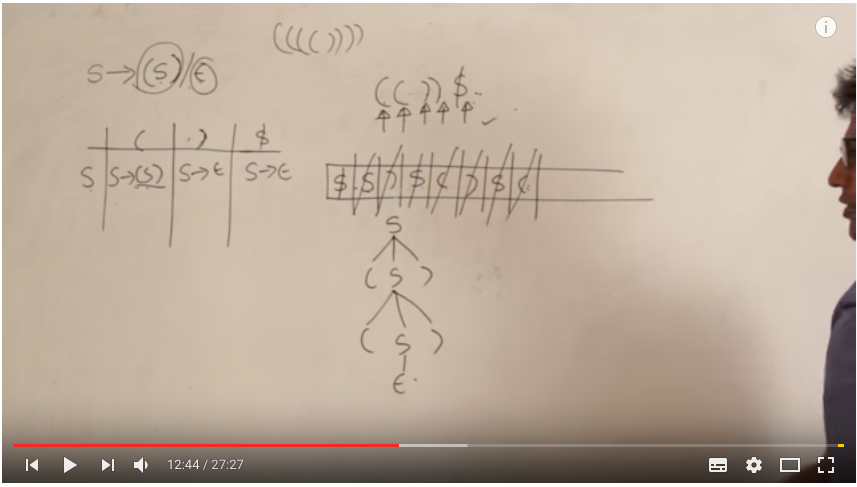 (((())))
S→(S)/ϵ
(())$
( ) $
S S→(S) S→ϵ S→ϵ
$ S ) $ ( ) $ (
S
( S )
( S )
ϵ
12:44 / 27:27